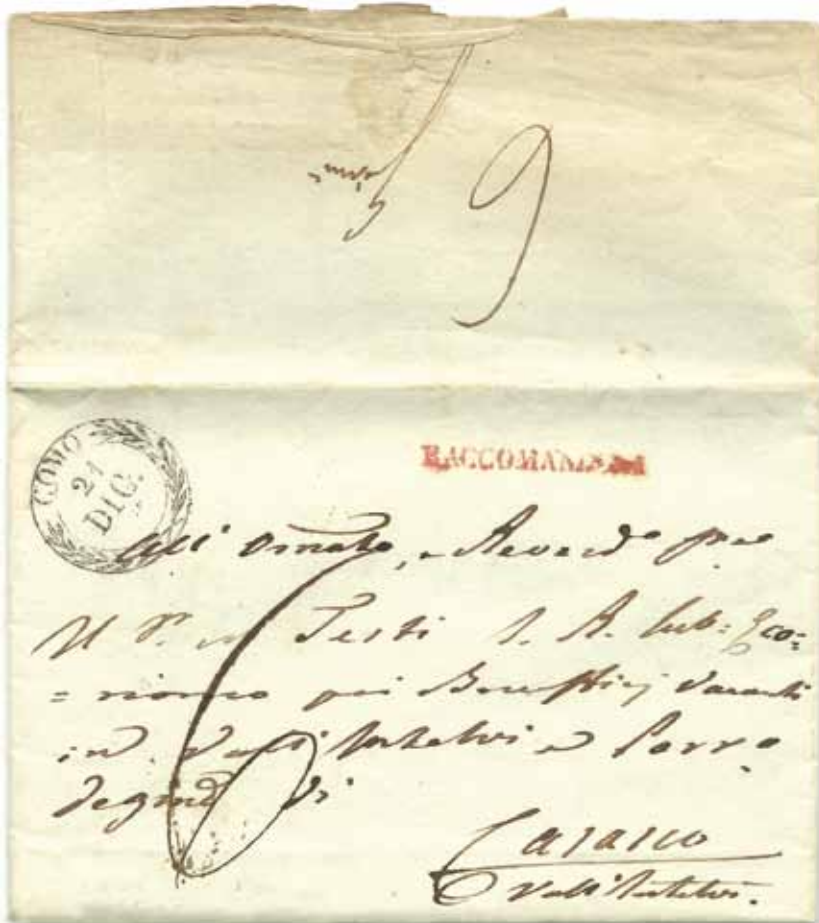 6
COMO
21
DIC.
RACCOMANDATA
All' Ornato, e Reverd°
Il Testi Sub: Eco=
=nomo pei Beneficj Vacanti
in Vall'Intelvi e Parr°
degnmo di
6
Casasco
Vall'Intelvi.